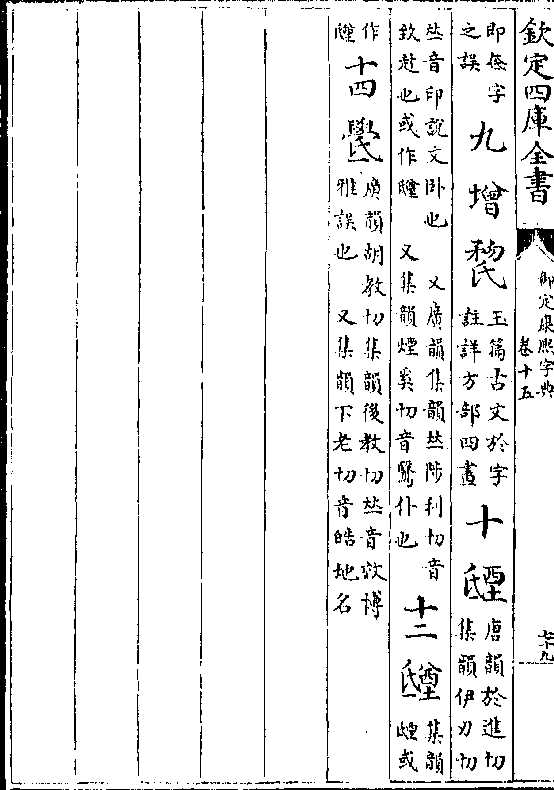 欽定四庫全書
御定康熙字典
卷十五
七十九
即 字
之誤
九 增
玉篇古文於字
註詳方部四畫
十
唐韻於進切
集韻伊刃切
𠀤音印說文卧也 又廣韻集韻𠀤陟利切音
致赴也或作 又集韻煙奚切音鷖仆也
十二
集韻
或
作
十四
廣韻胡教切集韻後教切𠀤音效博
雅誤也 又集韻下老切音皓地名